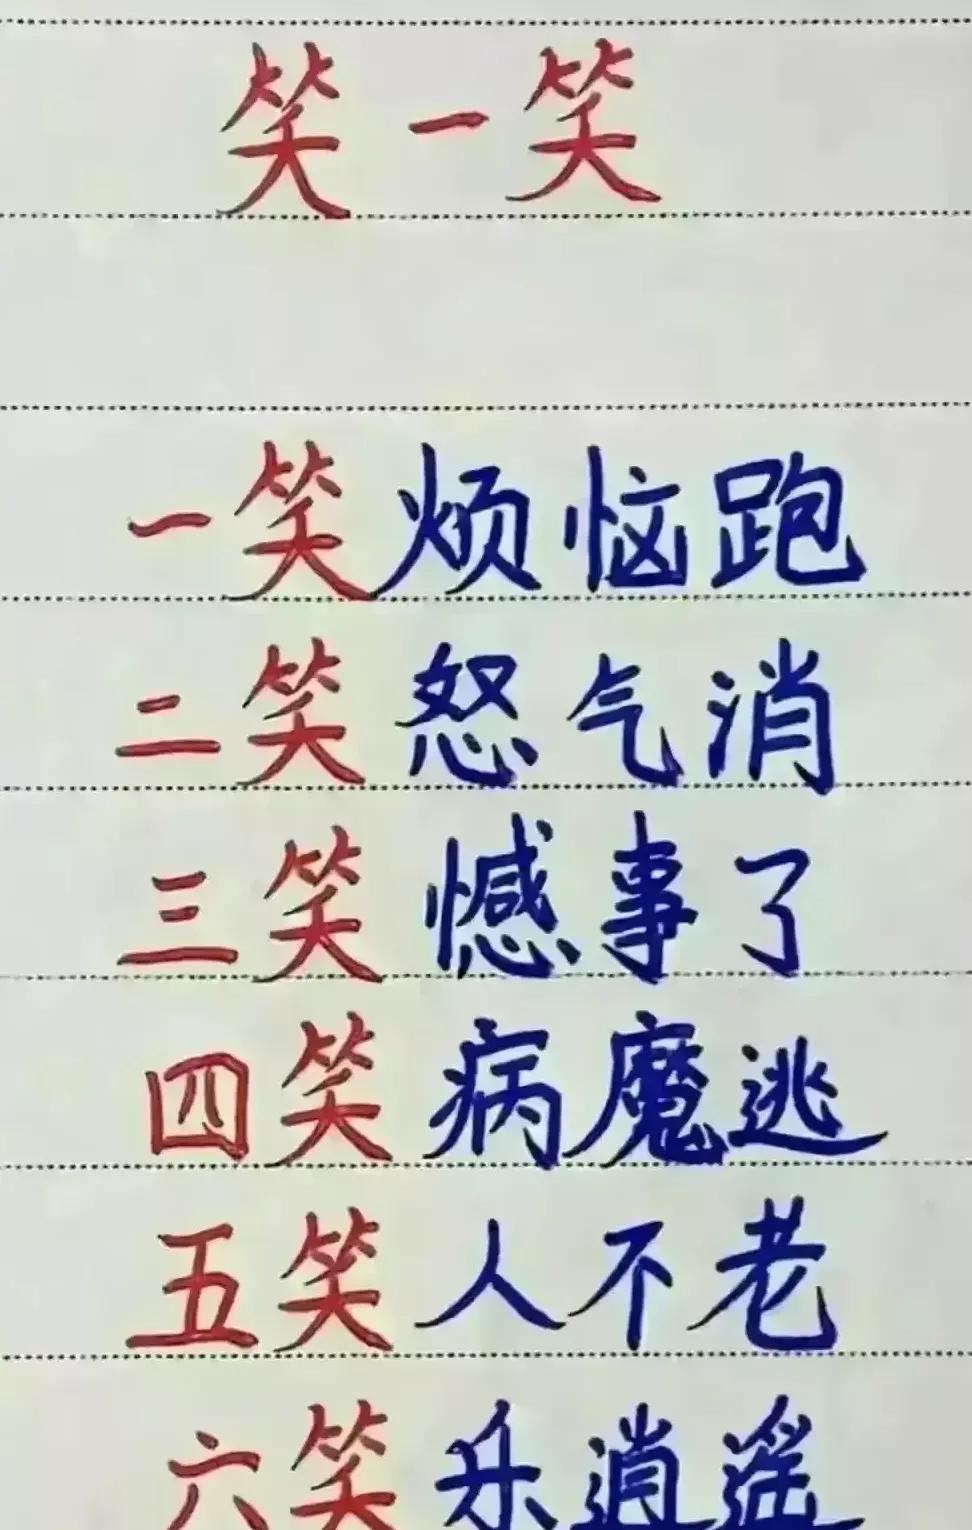 笑一笑
一笑烦恼跑
二笑怒气消
三笑憾事了
四笑病魔逃
五笑人不老
六笑乐逍遥